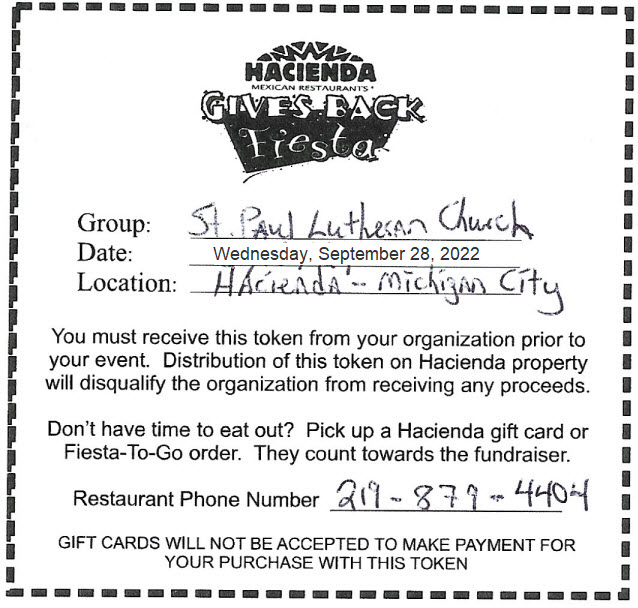 HACIENDA
MEXICAN RESTAURANTS®
GIVES BACK
Fiesta
Group: St. Paul Lutheran Church
Date: Wednesday, September 28, 2022
Location: Hacienda - Michigan City
You must receive this token from your organization prior to
your event. Distribution of this token on Hacienda property
will disqualify the organization from receiving any proceeds.
Don't have time to eat out? Pick up a Hacienda gift card or
Fiesta-To-Go order. They count towards the fundraiser.
Restaurant Phone Number 219-879-4404
GIFT CARDS WILL NOT BE ACCEPTED TO MAKE PAYMENT FOR
YOUR PURCHASE WITH THIS TOKEN